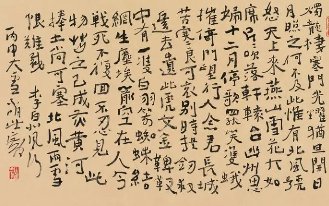 燭龍棲寒門光耀猶旦開日
月照之何不及此惟有北風號
怒天上來燕山雪花大如
席片片吹落軒轅台幽州思
婦十二月停歌罷笑雙蛾
摧倚門望行人念君長城
苦寒良可哀別時提劍救
邊去遺此虎文金鞞靫
中有一雙白羽箭蜘蛛結
網生塵埃箭空在人今
戰死不復回不忍見此
物焚之已成灰黃河
捧土尚可塞北風雨雪
恨難裁 李白北風行
丙申大雪